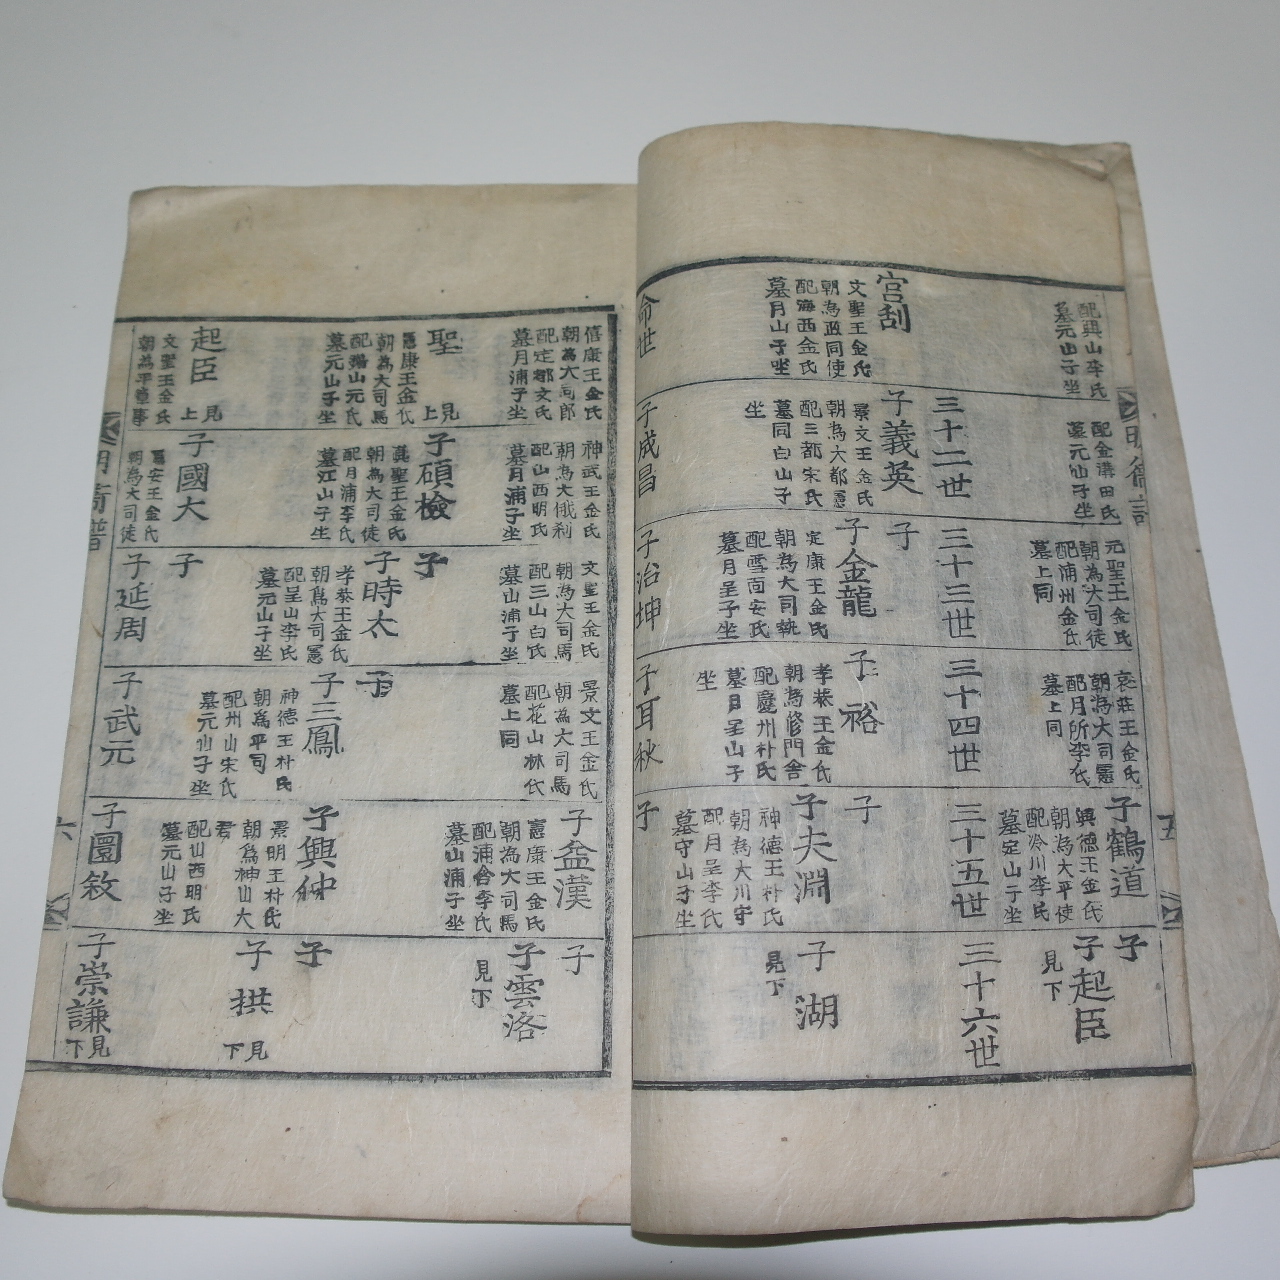 配興山李氏
墓元山子坐
宮刮
文聖王金氏
朝為政同使
配海西金氏
墓月山子坐
命世
配金溝田氏
墓元山子坐
三十二世
子義英
景文王金氏
朝為大都憲
配三都宋氏
墓同白山子
坐
子成昌
元聖王金氏
朝為大司徒
配浦州金氏
墓上同
三十三世
子
子金龍
定康王金氏
朝為大司執
配雪面安氏
墓月呈子坐
子治坤
哀莊王金氏
朝為大司憲
配月所李氏
墓上同
三十四世
子裕
孝恭王金氏
朝為修門舍
配慶州朴氏
墓月呈山子
坐
子耳秋
子鶴道
興德王金氏
朝為大平使
配冷川李氏
墓定山子坐
三十五世
子
子夫淵
神德王朴氏
朝為大川守
配月呈李氏
墓守山子坐
子
子
子起臣
見下
三十六世
子湖
見下
五
僖康王金氏
朝為大司郎
配定都文氏
墓月浦子坐
聖
見上
憲康王金氏
朝為大司馬
配楊山元氏
墓元山子坐
起臣
見上
文聖王金氏
朝為平章事
神武王金氏
朝為大俄刹
配山西明氏
墓月浦子坐
子碩檢
真聖王金氏
朝為大司徒
配月浦李氏
墓江山子坐
子國大
憲安王金氏
朝為大司徒
文聖王金氏
朝為大司馬
配三山白氏
墓山浦子坐
子
子時太
孝恭王金氏
朝為大司憲
配呈山李氏
墓元山子坐
子
子延周
景文王金氏
朝為大司馬
配花山林氏
墓上同
子
子三鳳
神德王朴氏
朝為平司
配州山宋氏
墓元山子坐
子武元
子益漢
憲康王金氏
朝為大司馬
配浦舍李氏
墓山浦子坐
子興仲
景明王朴氏
朝為神山大
君
配山西明氏
墓元山子坐
子圖敘
子
子雲洛
見下
子
子拱
見下
子崇謙
見下
六